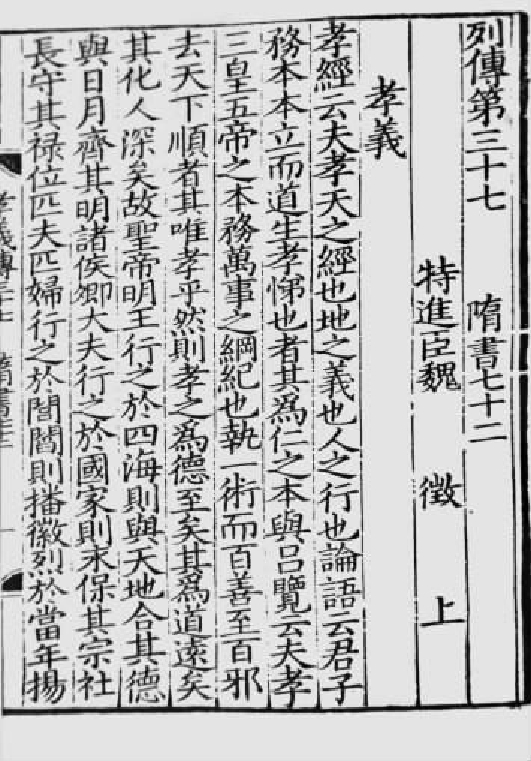 列傳第三十七　隋書七十二
特進臣魏　徵　上
孝義
孝經云夫孝天之經也地之義也人之行也論語云君子
務本本立而道生孝悌也者其爲仁之本與吕覽云夫孝
三皇五帝之本務萬事之綱紀也執一術而百善至百邪
去天下順者其唯孝乎然則孝之爲德至矣其爲道遠矣
其化人深矣故聖帝明王行之於四海則與天地合其德
與日月齊其明諸侯卿大夫行之於國家則永保其宗社
長守其禄位匹夫匹婦行之於閭閻則播徽烈於當年揚